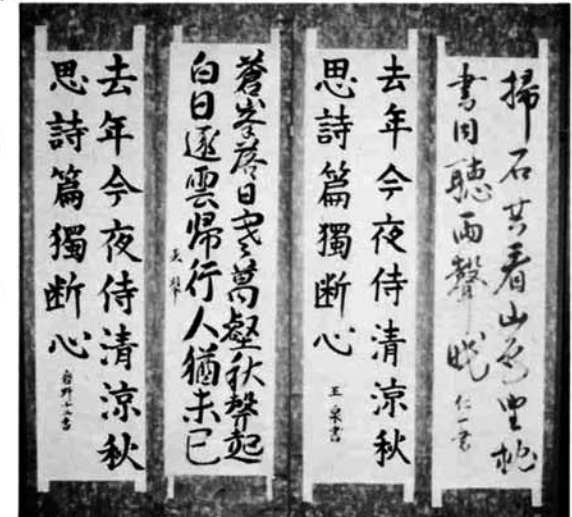 掃石共看山色坐枕
書同聽雨聲眠
仁一書
去年今夜侍清涼秋
思詩篇獨断心
泉書
蒼峯落日寒萬壑秋聲起
白日逐雲歸行人猶未已
去年今夜侍清涼秋
思詩篇獨断心